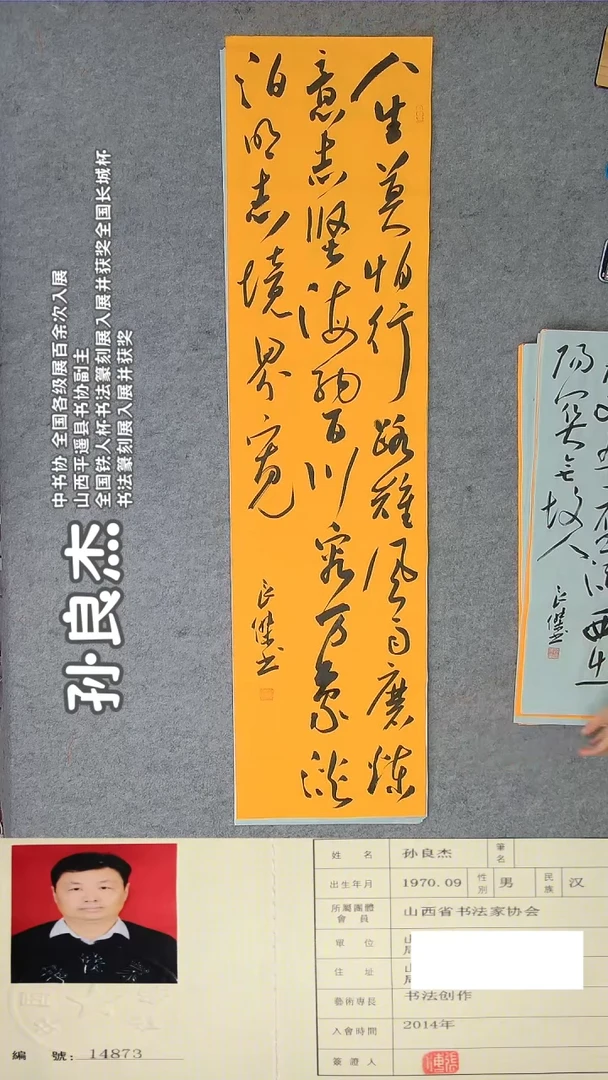 人生莫怕行路難風雨磨煉
意志堅海納百川容万象淡
泊明志境界寬
良傑书
故人
良傑书
中书协 全国各级展百余次入展
山西平遥县书协副主
全国铁人杯书法篆刻展入展并获奖全国长城杯
书法篆刻展入展并获奖
孙良杰
姓 名 孙良杰 筆名
出生年月 1970.09 性別 男 民族 汉
所屬團體會員 山西省书法家协会
單 位
住 址
藝術專長 书法创作
入會時間 2014年
簽證人
編 號: 14873